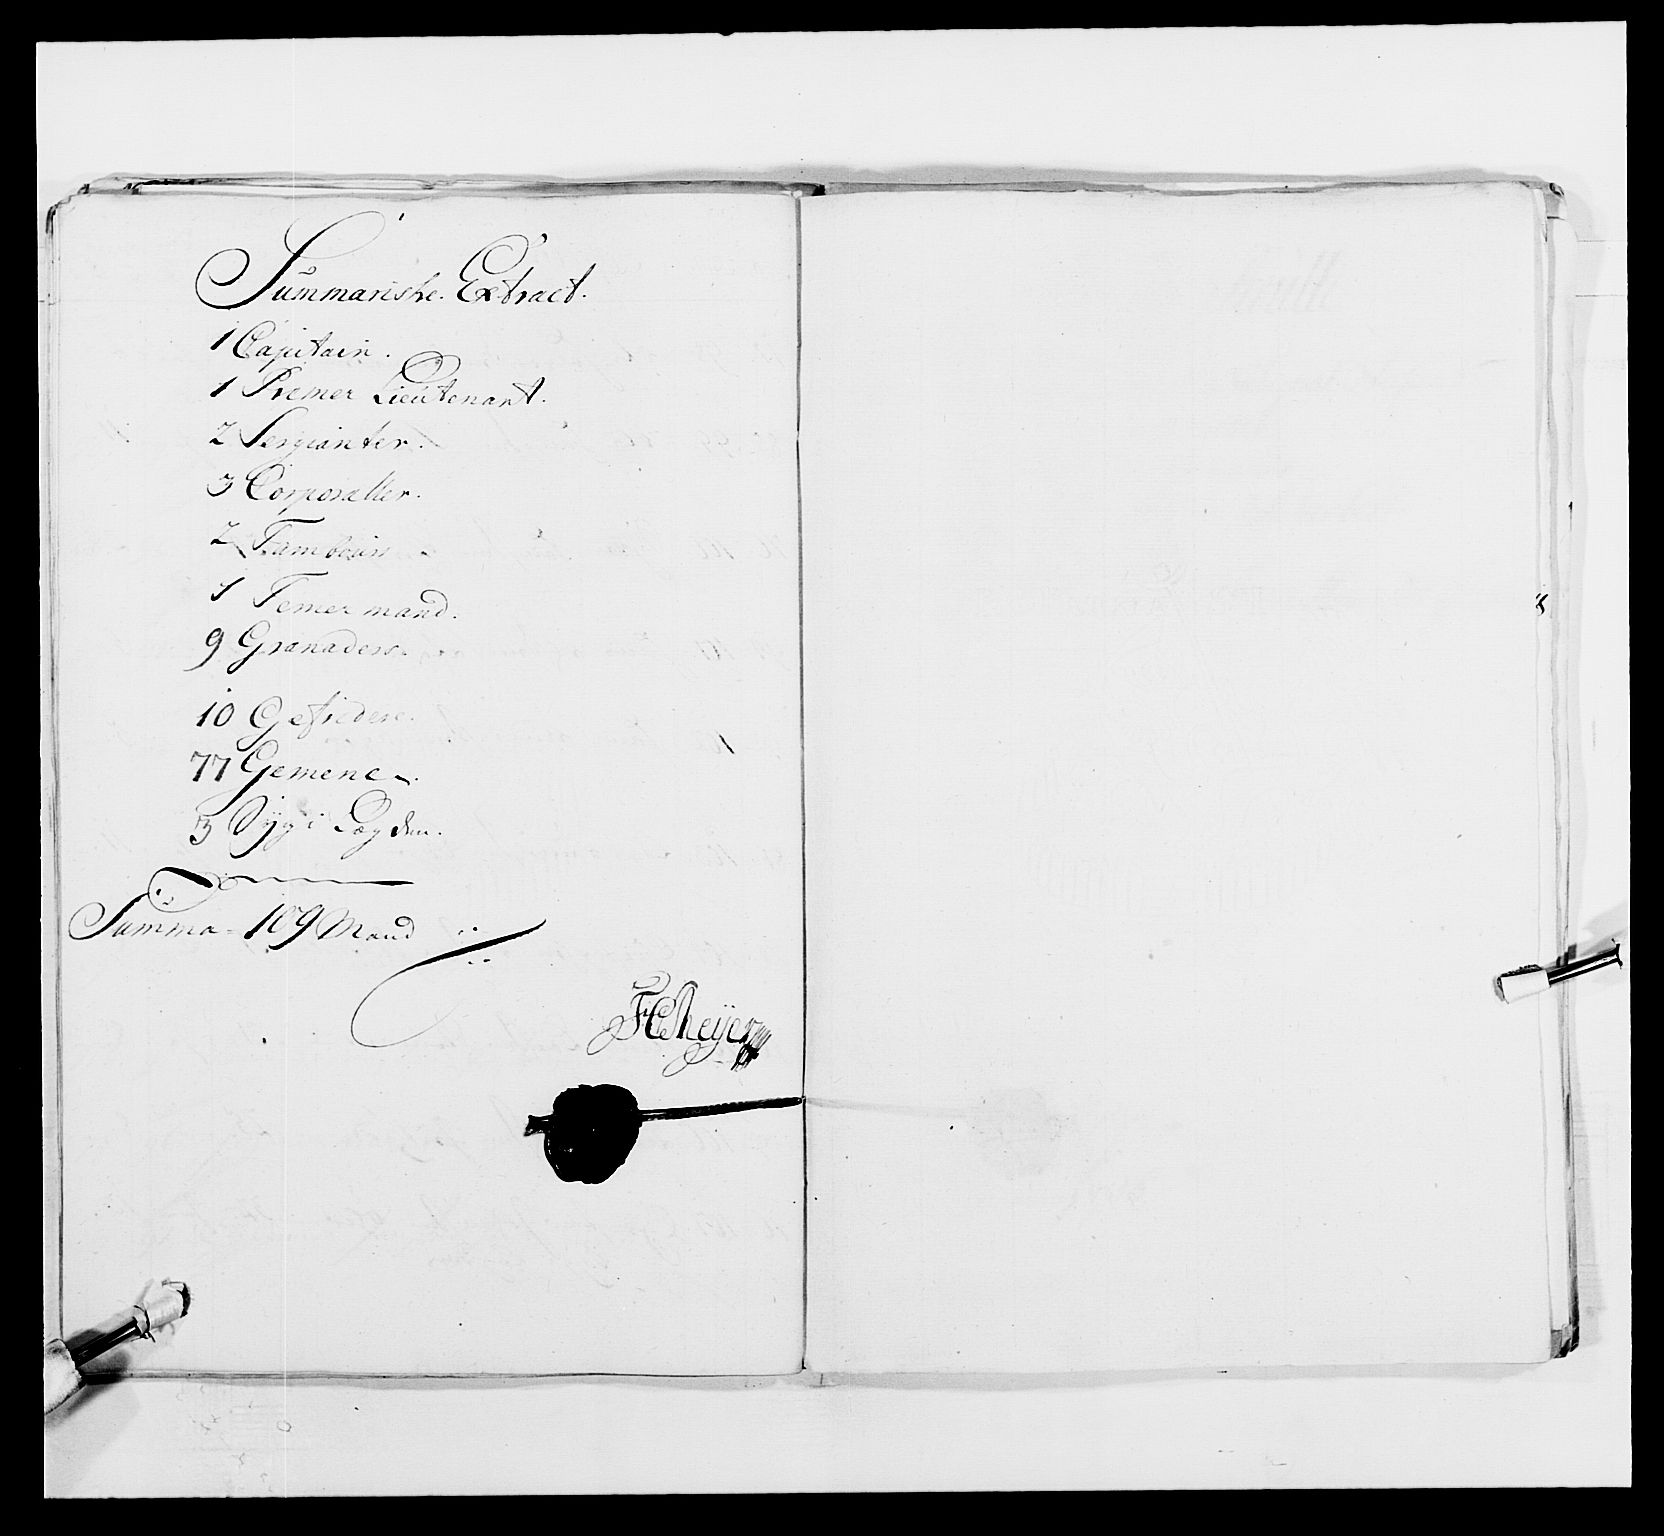 Summariske Extract.
1 Capitain.
1 Premer Lieutenant.
2 Sergianter.
3 Corporaller.
2 Tambours
1 Temermand.
9 Granaders.
10 Gefriedere.
77 Gemene.
3 Syg i Lægden.
Summa - 109 Mand
FC Meÿer